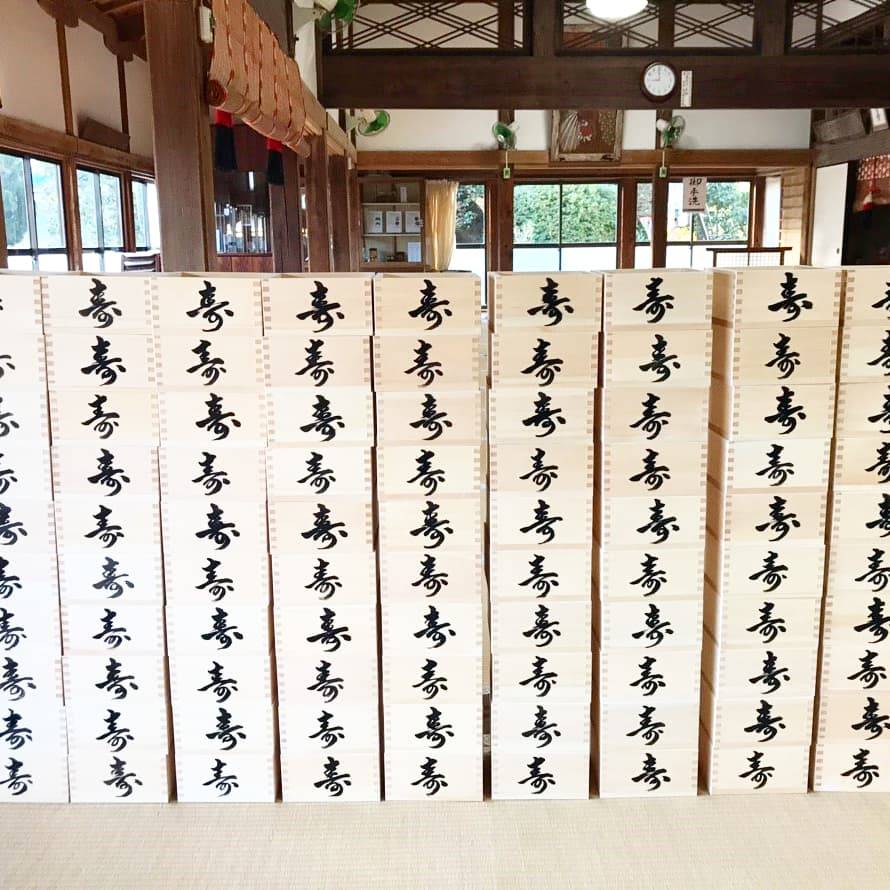 御手洗
寿 寿 寿 寿 寿 寿 寿 寿
寿 寿 寿 寿 寿 寿 寿 寿
寿 寿 寿 寿 寿 寿 寿 寿 寿
寿 寿 寿 寿 寿 寿 寿 寿 寿
寿 寿 寿 寿 寿 寿 寿 寿 寿
寿 寿 寿 寿 寿 寿 寿 寿 寿
寿 寿 寿 寿 寿 寿 寿 寿 寿
寿 寿 寿 寿 寿 寿 寿 寿 寿
寿 寿 寿 寿 寿 寿 寿 寿 寿
寿 寿 寿 寿 寿 寿 寿 寿 寿